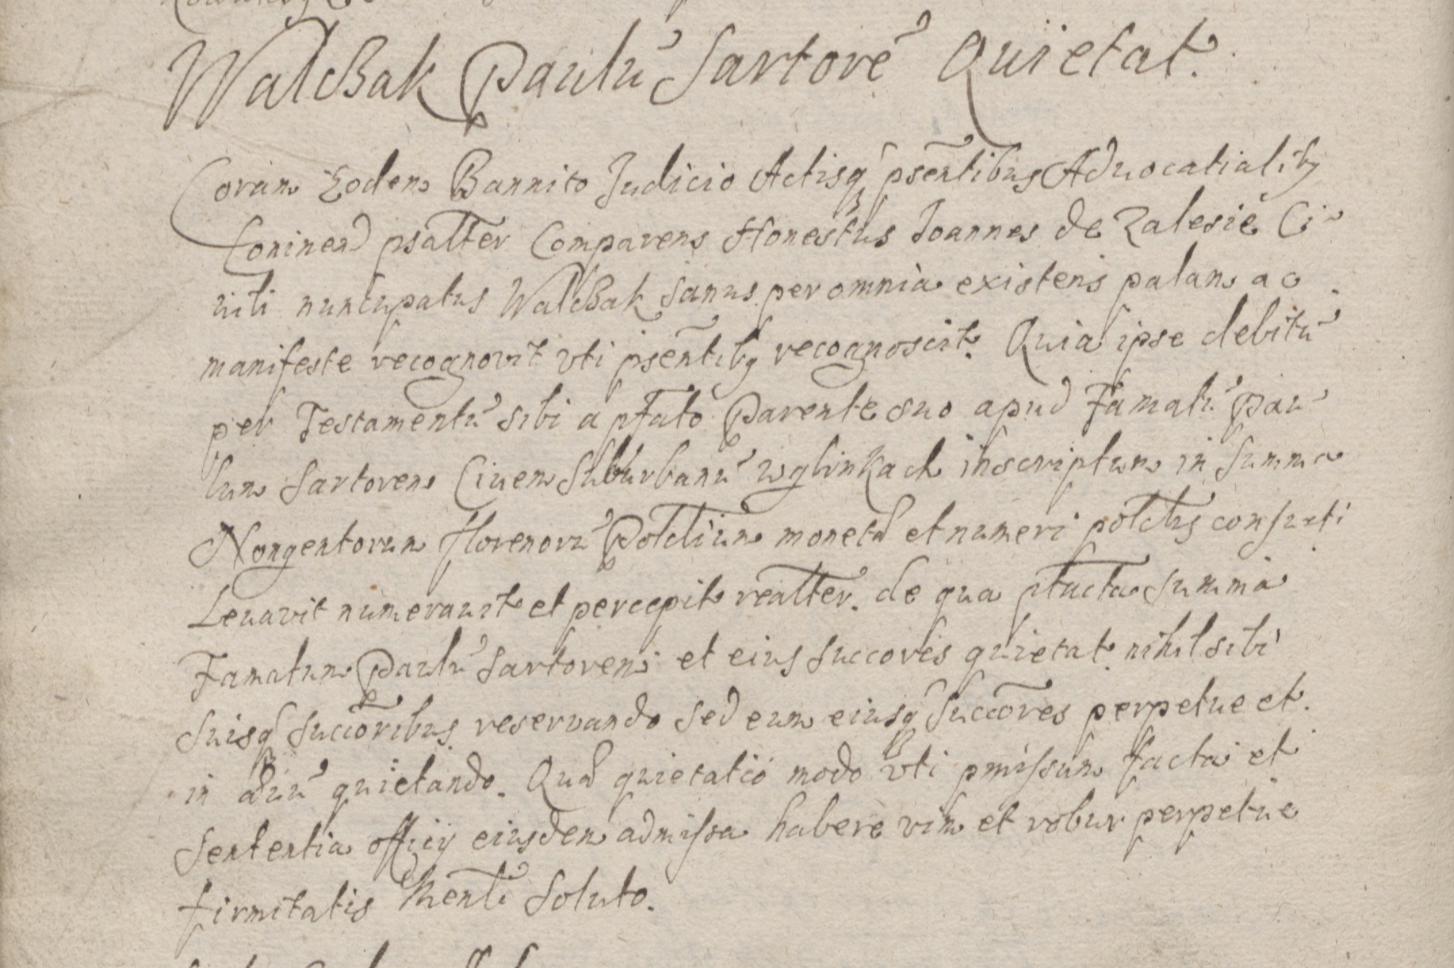 Walchak Paulū Sartorē Quietat.
Coram Eodem Bannito Judicio Actisq̃ psẽntibus Advocatialib9
psalľter Comparens Honestus Joannes de Zalesie Ci
uili nuncupatus Walchak sanus per omnia existens palam ac
manifeste recognovit vti psẽntib9 recognoscit. Quia ipse debitū
per Testamentū sibi a pfato Parente suo apud Famatū Pau
lum Sartorem Ciuem Suburbanū wglinkach inscriptum in summa
Nongentorum florenorū monetæ et numeri consueti
Leuavit numerauit et percepit realľter. de qua ptacta summa
Famatum Paulū Sartorem et eius succores quietat nihil sibi
suisq̃ succõribus reseruando sed eum eiusq̃ succõres perpetue et
in æuū quietando. Quæ quietatio modo vti pmissum facta et
Sententia officij eiusdem admissa habere vim et robur perpetue
firmitatis soluto.